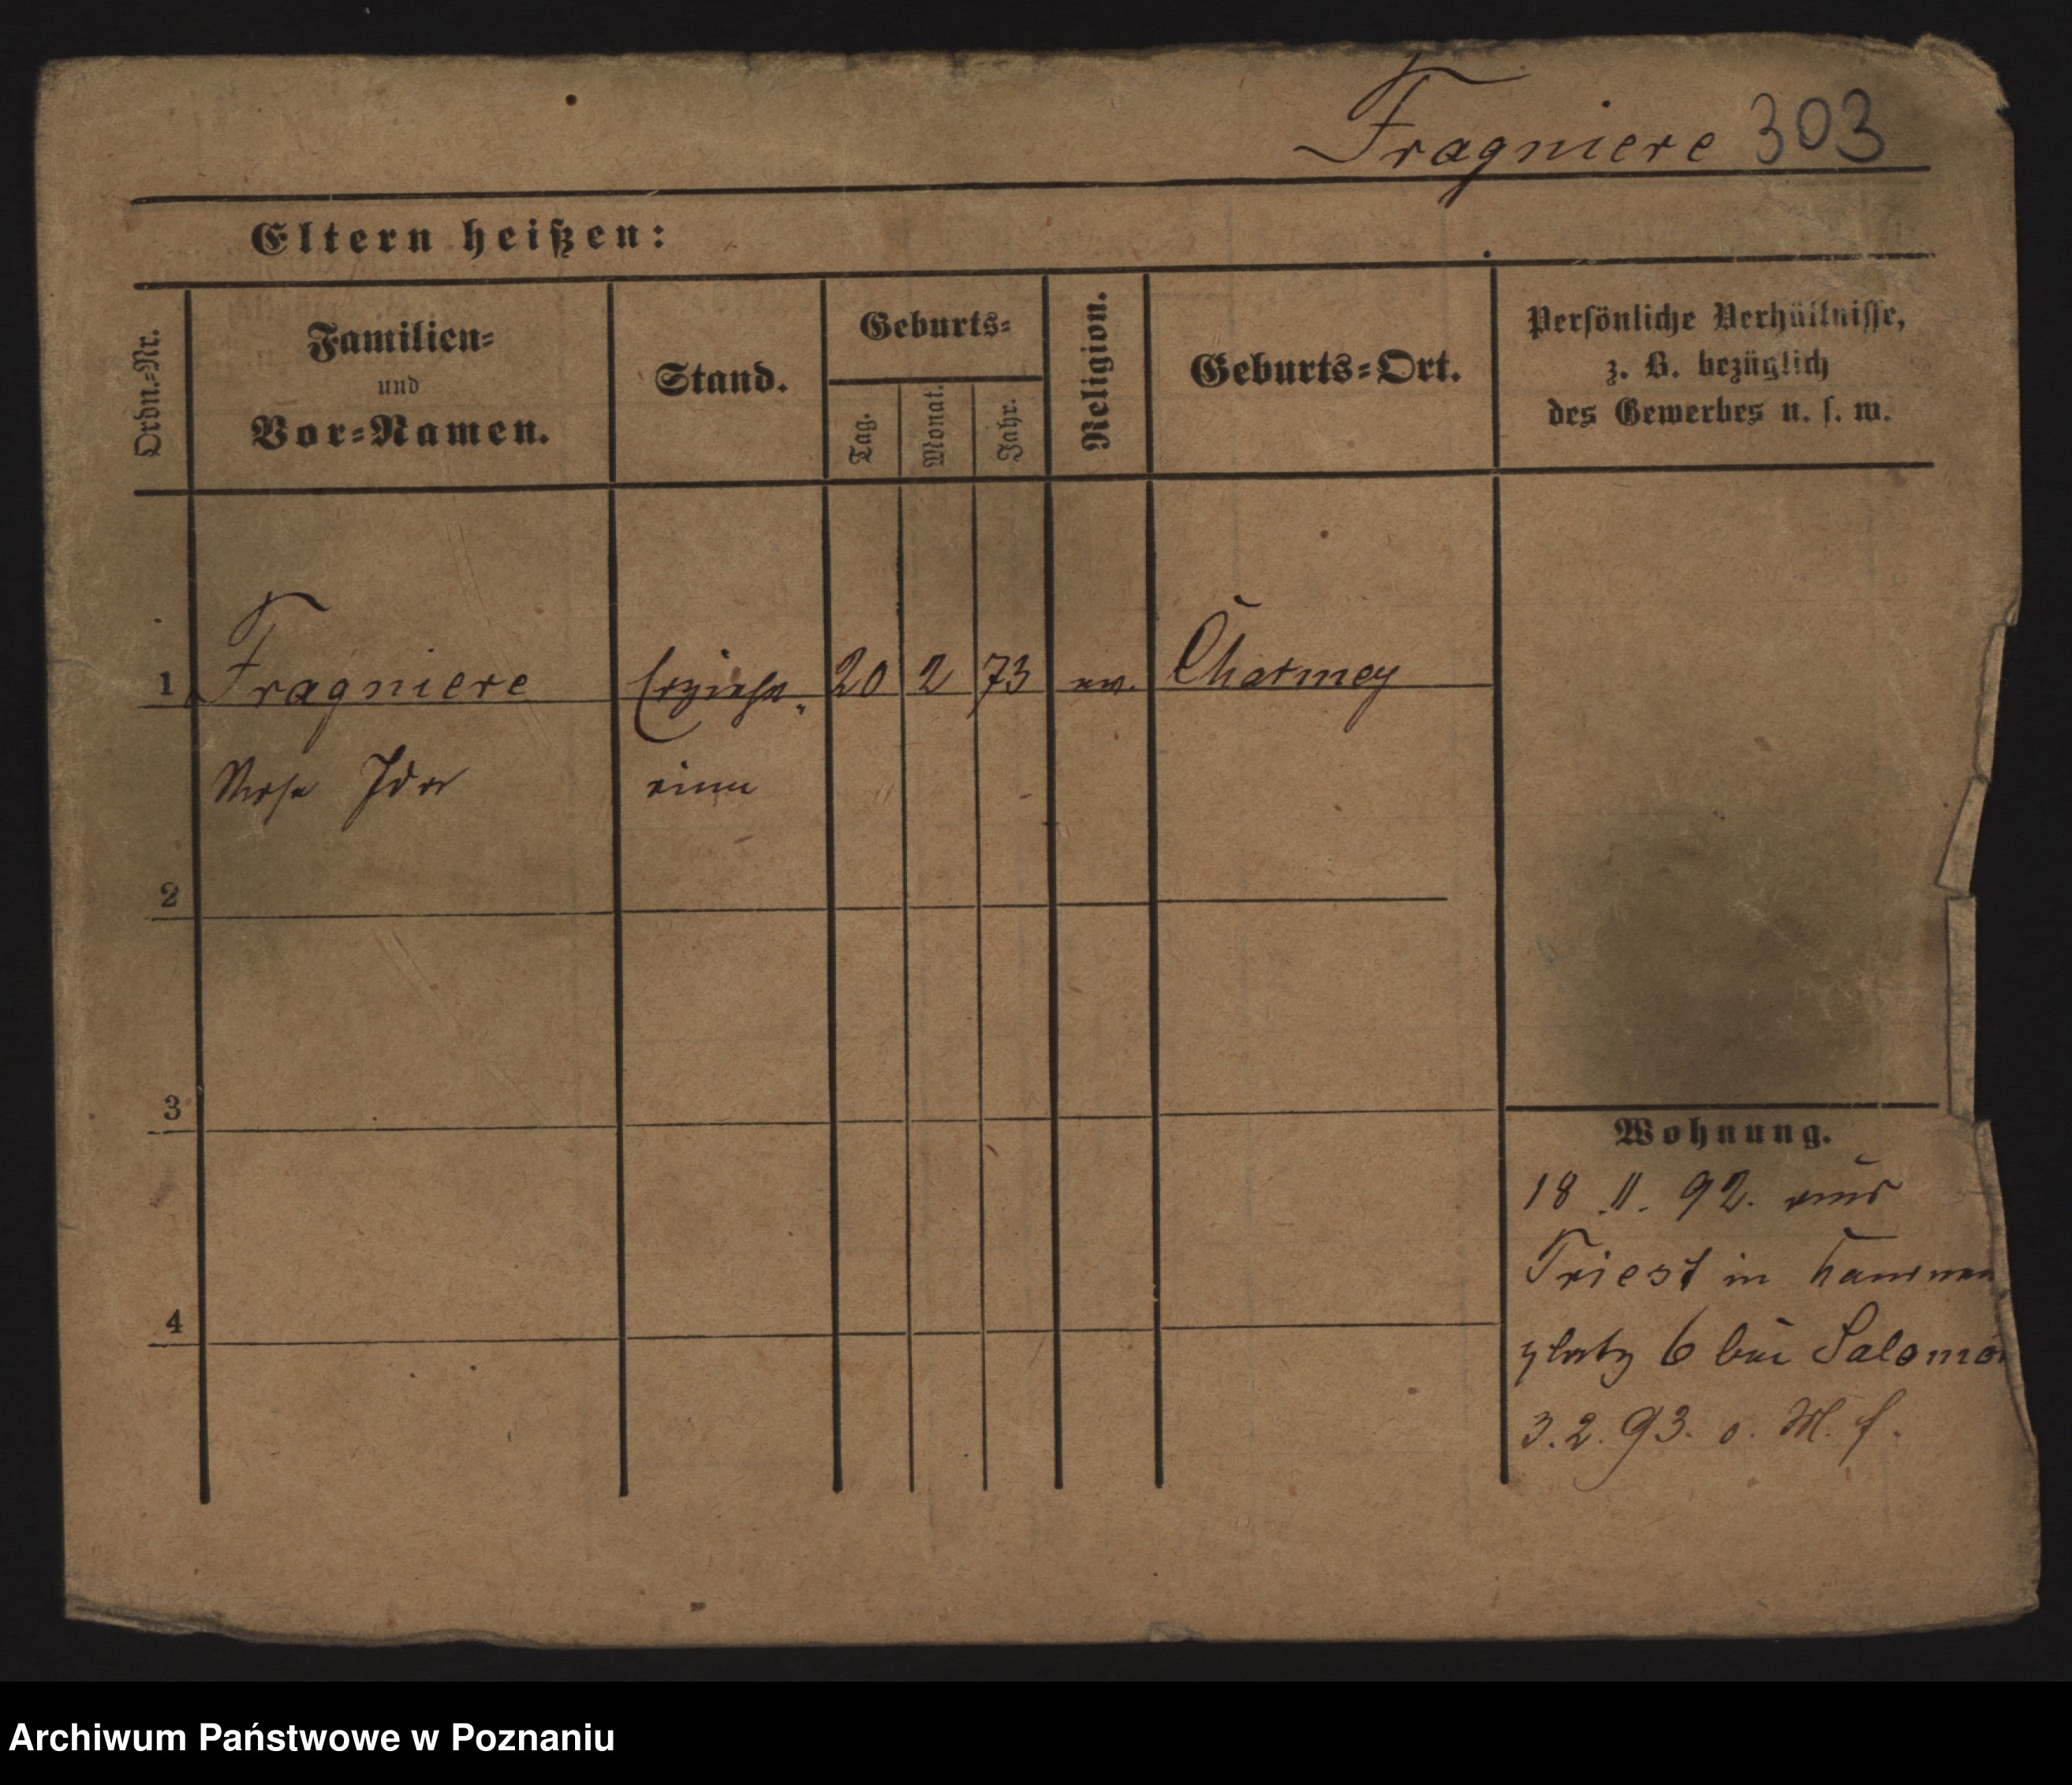 Fragniere 303
Eltern heißen:
Ordn.-Nr.
Familien-
und
Vor-Namen.
Stand.
Geburts-
Tag.
Monat.
Jahr.
Religion.
Geburts-Ort.
Persönliche Verhältnisse,
z. B. bezüglich
des Gewerbes u. s. w.
1 Fragniere Erziehe- 20 2 73 ev. Charmey
Rosa Ida rinn
2
3
4
Wohnung.
18.11.92. aus
Triest in
platz 6 bei Salomon
3.2.93. o. M. f.
Archiwum Państwowe w Poznaniu